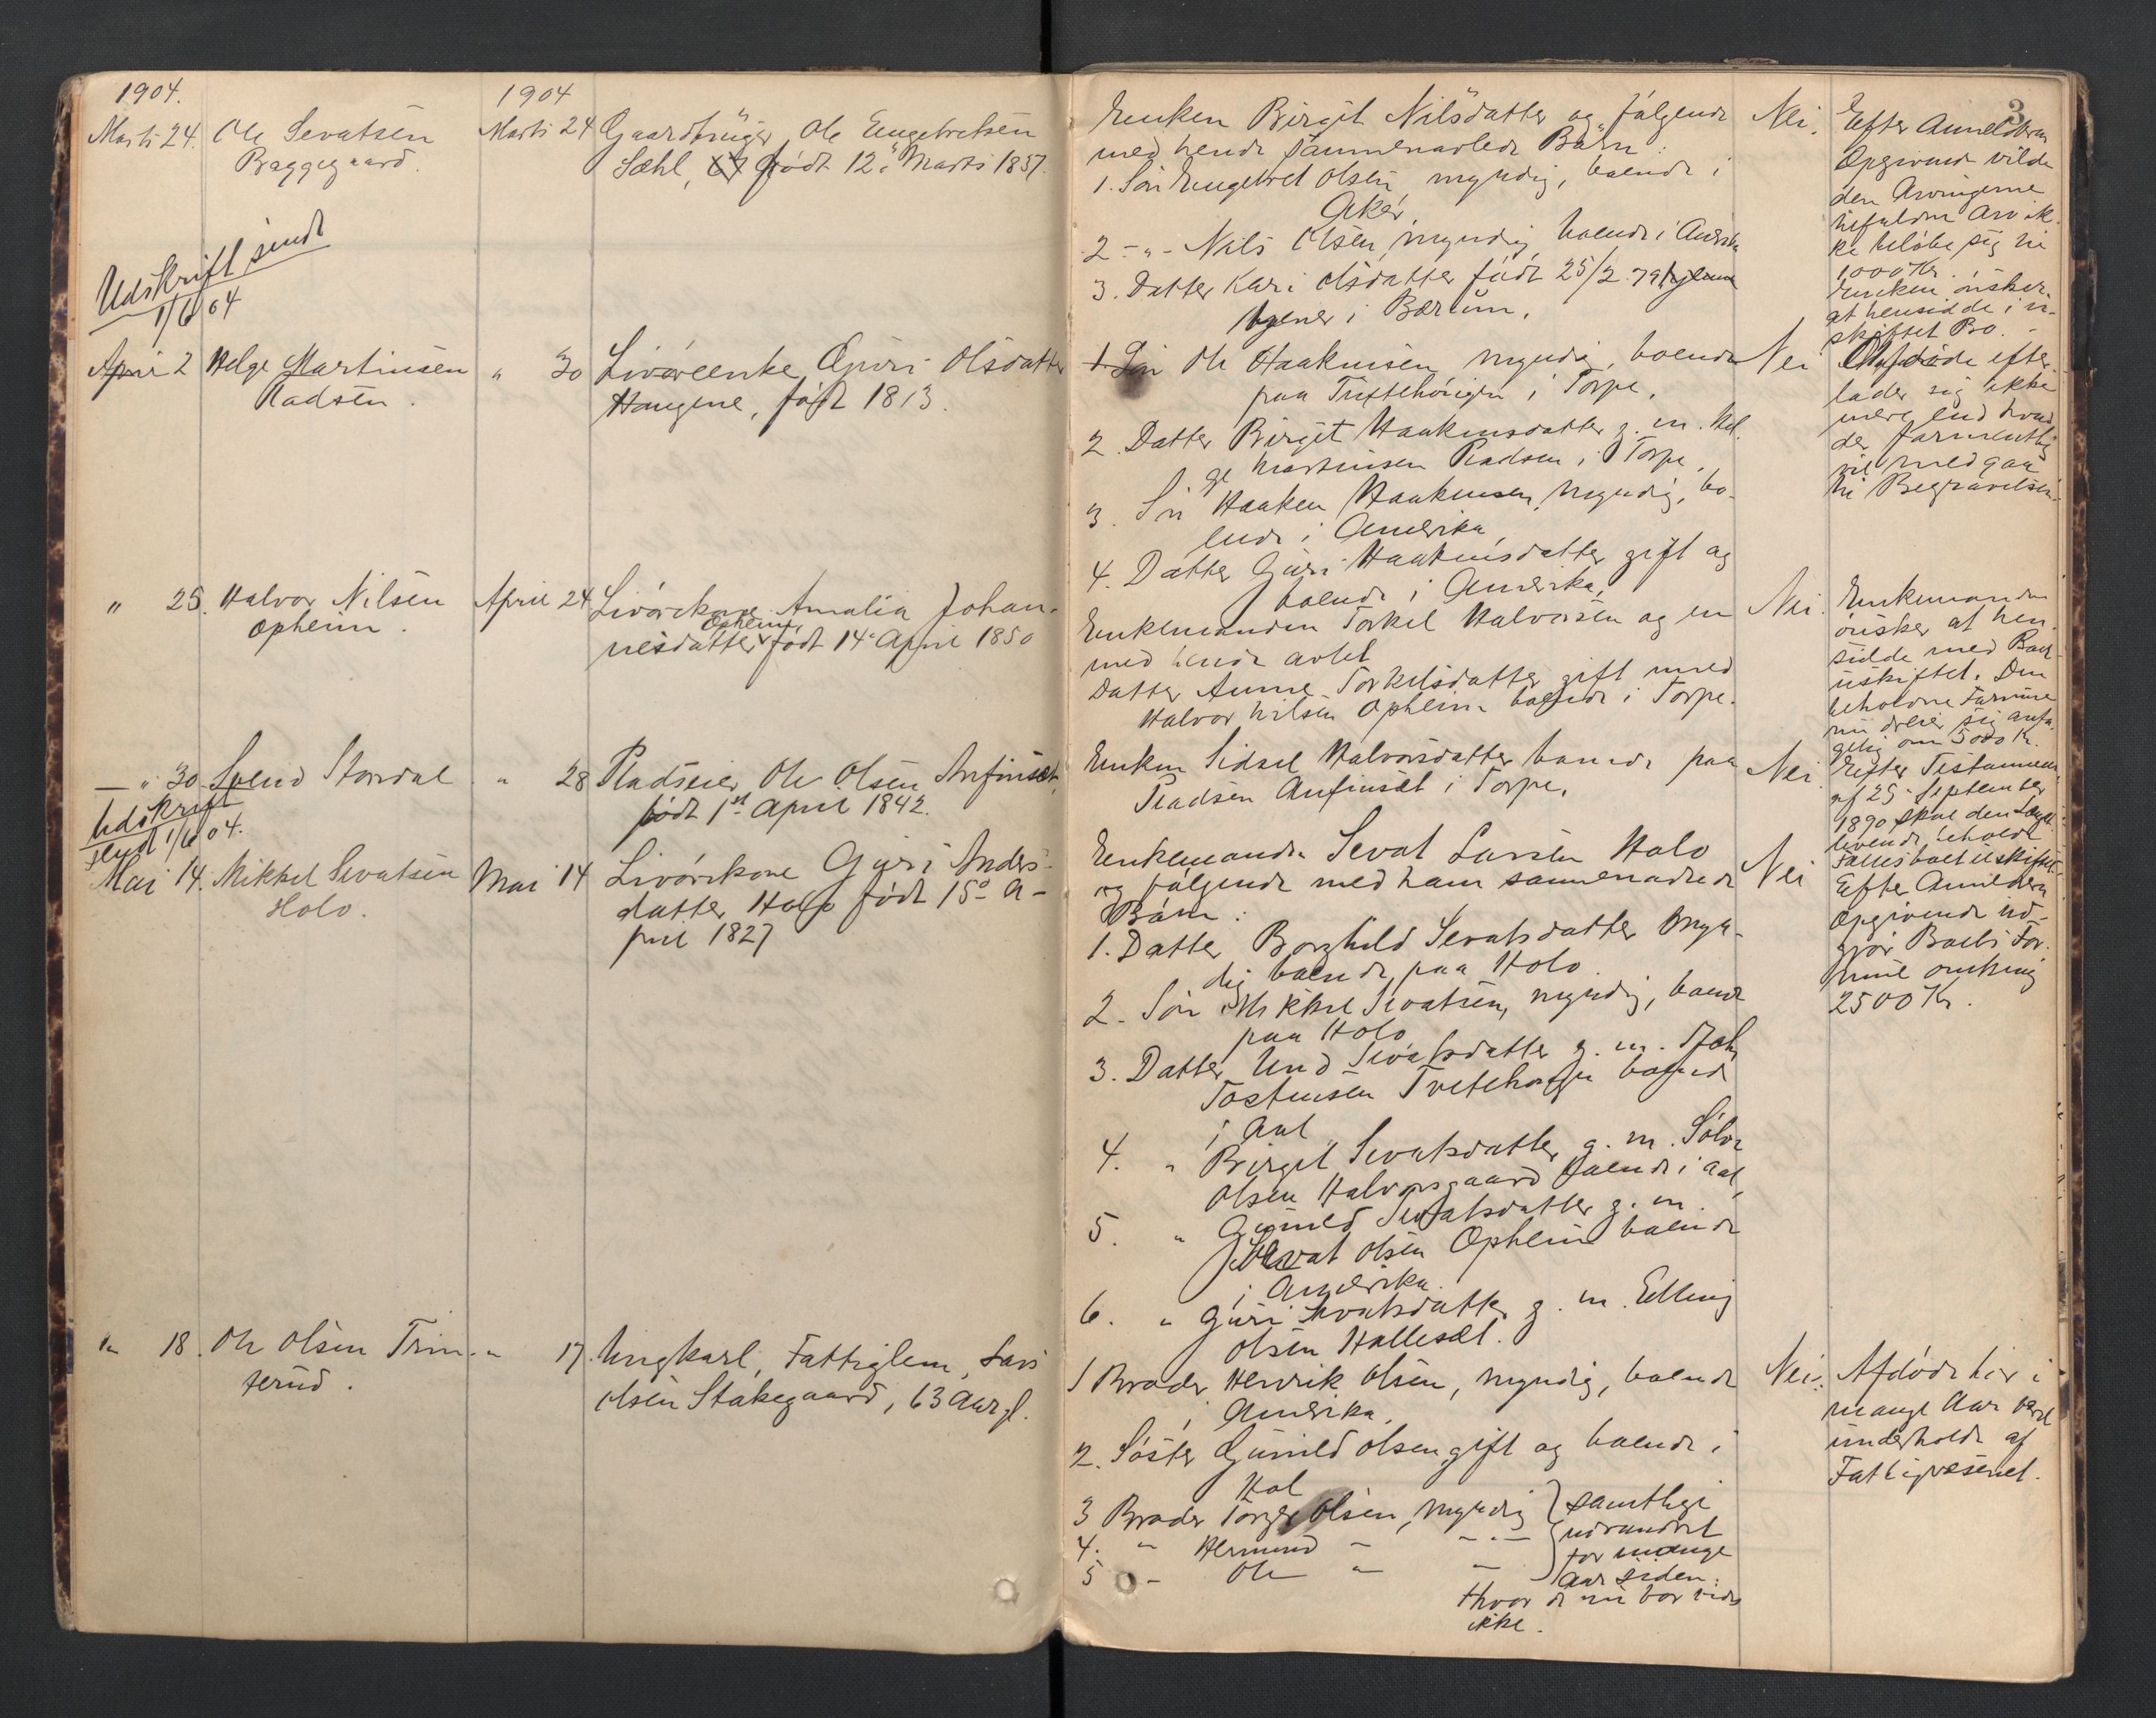 1904.
1904
Marts 24. Ole Sevatsen
Baggegaard.
Marts 24 Gaardbruger Ole Engebretsen
Sæhl, født 12. Marts 1837.
Udskrift sendt
1/6 04
Enken Birgit Nilsdatter og følgende
med hende sammenavlede Børn:
1. Søn Engebret Olsen, myndig, boende i
Aker
2 - " - Nils Olsen, myndig, boende i Amerika
3. Datter Kari Olsdatter født 25/2 79, hjemme
i Bærum.
Nei.
3
Efter Anmelderens
Opgivende vilde
den Arvingerne
tilfaldne Arv ik-
ke beløbe sig til
1,000 Kr.
Enken ønsker
at hensidde i u-
skiftet Bo.
April 2 Helge Martinsen
Pladsen.
" 30 Livøreenke Guri Olsdatter
Haugene, født 1813.
1. Søn Ole Haakensen myndig, boende
paa Tuftehougen i Torpe,
2. Datter Birgit Haakensdatter g. m. Hel-
ge Martinsen Pladsen, i Torpe,
3. Søn Haaken Haakensen, myndig, bo-
ende i Amerika
4. Datter Guri Haakensdatter gift og
boende i Amerika,
Nei
Afdøde efter-
lader sig ikke
mere end hvad
der formentlig
vil medgaa
til Begravelsen.
" 25. Halvor Nilsen
Opheim.
April 24 Livørekone Amalia Johan-
Opheim,
nesdatter født 14. April 1850
Enkemanden Torkel Halvorsen og en
med hende avlet
Datter Anne Torkelsdatter gift med
Halvor Nilsen Opheim boende i Torpe.
Nei.
Enkemanden
ønsker at hen-
sidde med Boet
uskiftet. Den
beholdne Formue
dreier sig anta-
gelig om 5000 Kr.
— " 30. Svend Stordal
Udskrift
sendt 1/6 04.
" 28 Pladseier Ole Olsen Anfinset,
født 1st April 1842.
Enken Sidsel Halvorsdatter boende paa
Pladsen Anfinset i Torpe.
Nei
Efter Testament
af 25. September
1890 skal den Længst-
levende beholde
Fællesboet uskiftet.
Mai 14. Mikkel Sevatsen
Holo.
Mai 14 Livørekone Guri Anders-
datter Holo født 15de A-
pril 1827
Enkemanden Sevat Larsen Holo
og følgende med ham sammenavlede
Børn:
1. Datter Borghild Sevatsdatter myn-
dig boende paa Holo.
2. Søn Mikkel Sevatsen, myndig, boende
paa Holo
3. Datter Und Sevatsdatter g. m.
Tostensen Tvetehaugen boende
i Aal
4. " Birgit Sevatsdatter g. m. Sølve
Olsen Halvorsgaard boende i Aal,
5. " Gunild Sevatsdatter g. m.
Sevat Olsen Opheim boende
i Amerika.
6. " Guri Sevatsdatter g. m. Elling
Olsen Hallesæt.
Nei
Efter Anmelderens
Opgivende ud-
gjør Boets For-
mue omkring
2500 Kr.
" 18. Ole Olsen Trin-
terud.
" 17. Ungkarl, Fattiglem, Lars
Olsen Stakegaard, 63 Aar gl.
1 Broder Henrik Olsen, myndig, boende
i Amerika.
2. Søster Gunild Olsen gift og boende i
Hol
3 Broder Torger Olsen, myndig
4. " Hermund " - " -
5 " Ole " "
samtlige
udvandret
for mange
Aar siden.
Hvor de nu bor vides
ikke.
Nei.
Afdøde har i
mange Aar været
underholdt af
Fattigvæsenet.